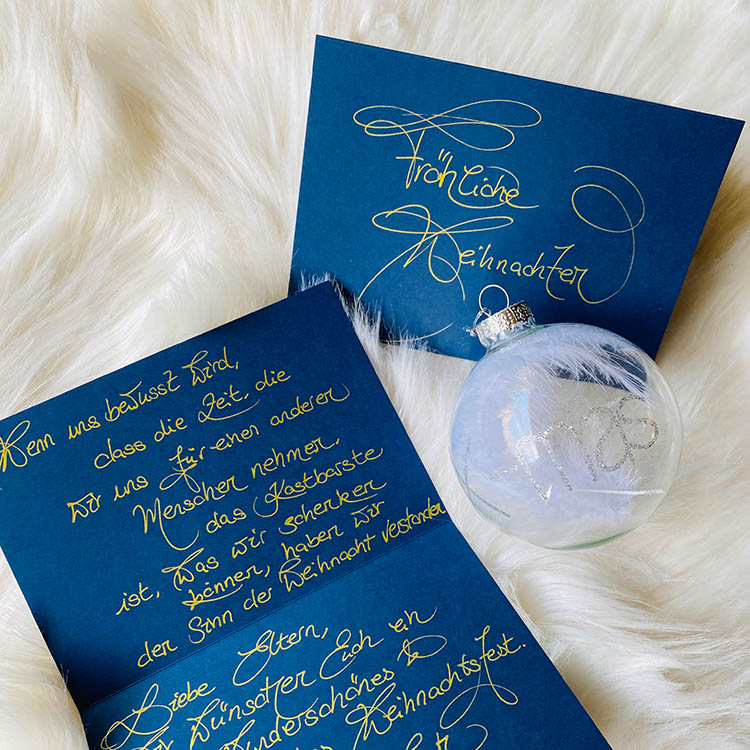 Fröhliche
Weihnachten
Wenn uns bewusst wird,
dass die Zeit, die
wir uns für einen anderen
Menschen nehmen,
das Kostbarste
ist, was wir schenken
können, haben wir
den Sinn der Weihnacht verstanden
Liebe Eltern,
wir wünschen Euch ein
wunderschönes &
Weihnachtsfest.